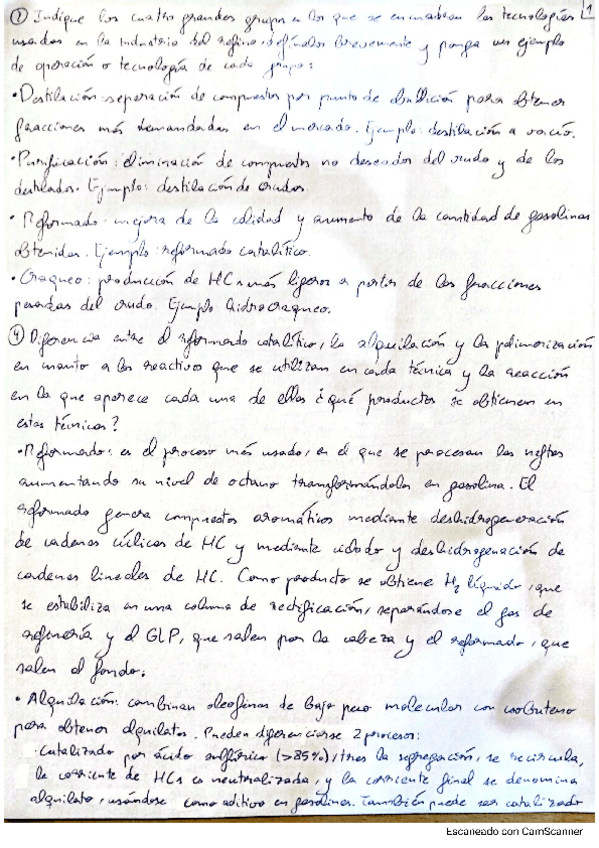 ② Indique los cuatro grandes grupos a los que se enmarcan las tecnologías 1
usadas en la industria del refino, defínalos brevemente y ponga un ejemplo
de operación o tecnología de cada grupo:
• Destilación: separación de compuestos por punto de ebullición para obtener
fracciones más demandadas en el mercado. Ejemplo: destilación a vacío.
• Purificación: eliminación de compuestos no deseados del crudo y de los
destilados. Ejemplo: destilación de crudos.
• Reformado: mejora de la calidad y aumento de la cantidad de gasolinas
obtenidas. Ejemplo: reformado catalítico.
• Craqueo: producción de HCs más ligeros a partir de las fracciones
pesadas del crudo. Ejemplo hidrocraqueo.
④ Diferencia entre el reformado catalítico, la alquilación y la polimerización
en cuanto a los reactivos que se utilizan en cada técnica y la reacción
en la que aparece cada una de ellas ¿qué productos se obtienen en
estas técnicas?
• Reformado: es el proceso más usado, en el que se procesan las naftas
aumentando su nivel de octano transformándolas en gasolina. El
reformado genera compuestos aromáticos mediante deshidrogenación
de cadenas cíclicas de HC y mediante ciclado y deshidrogenación de
cadenas lineales de HC. Como producto se obtiene H₂ líquido, que
se estabiliza en una columna de rectificación, separándose el gas de
refinería y el GLP, que salen por la cabeza y el reformado, que
salen el fondo.
• Alquilación: combinan oleofinas de bajo peso molecular con isobuteno
para obtener alquilatos. Pueden diferenciarse 2 procesos:
catalizado por ácido sulfúrico (>85%), tras la segregación, se recircula,
la corriente de HCs es neutralizada, y la corriente final se denomina
alquilato, usándose como aditivo en gasolinas. También puede ser catalizado
Escaneado con CamScanner